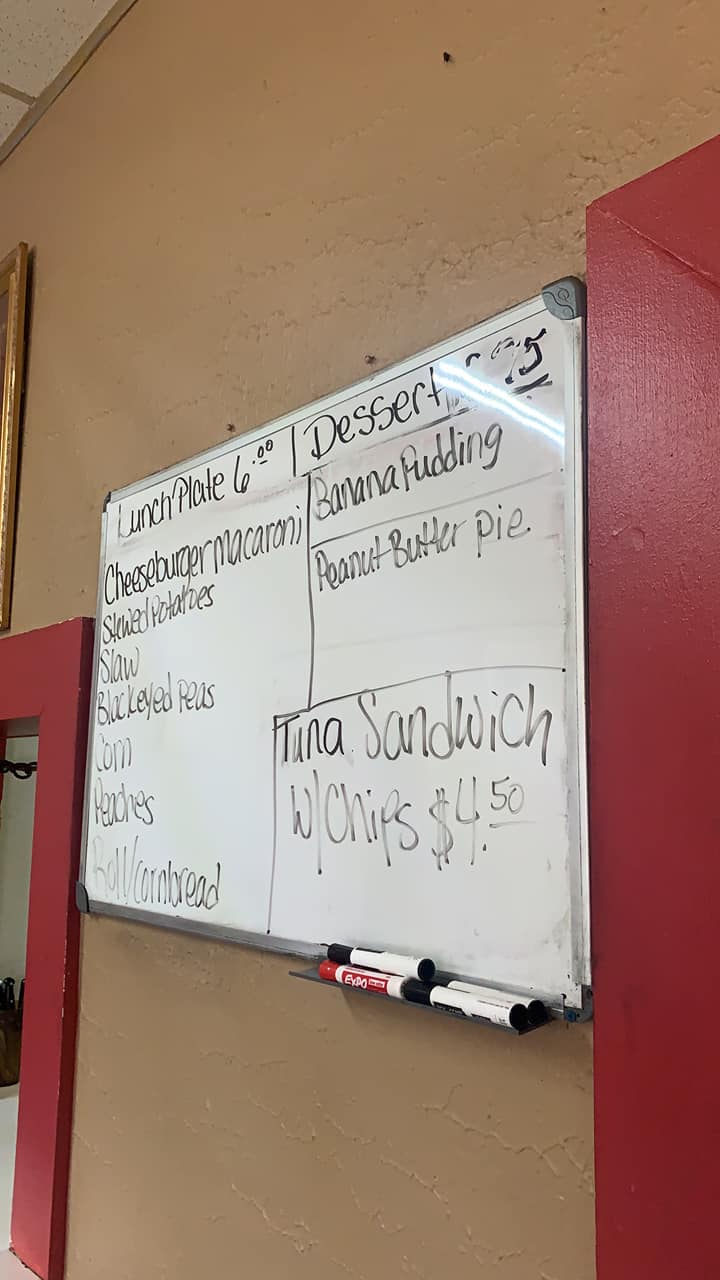 Lunch Plate 6.00
Cheeseburger Macaroni
Stewed Potatoes
Slaw
Blackeyed Peas
Corn
Peaches
Roll/Cornbread
Dessert
Banana Pudding
Peanut Butter Pie
Tuna Sandwich
W/Chips $4.50
EXPO